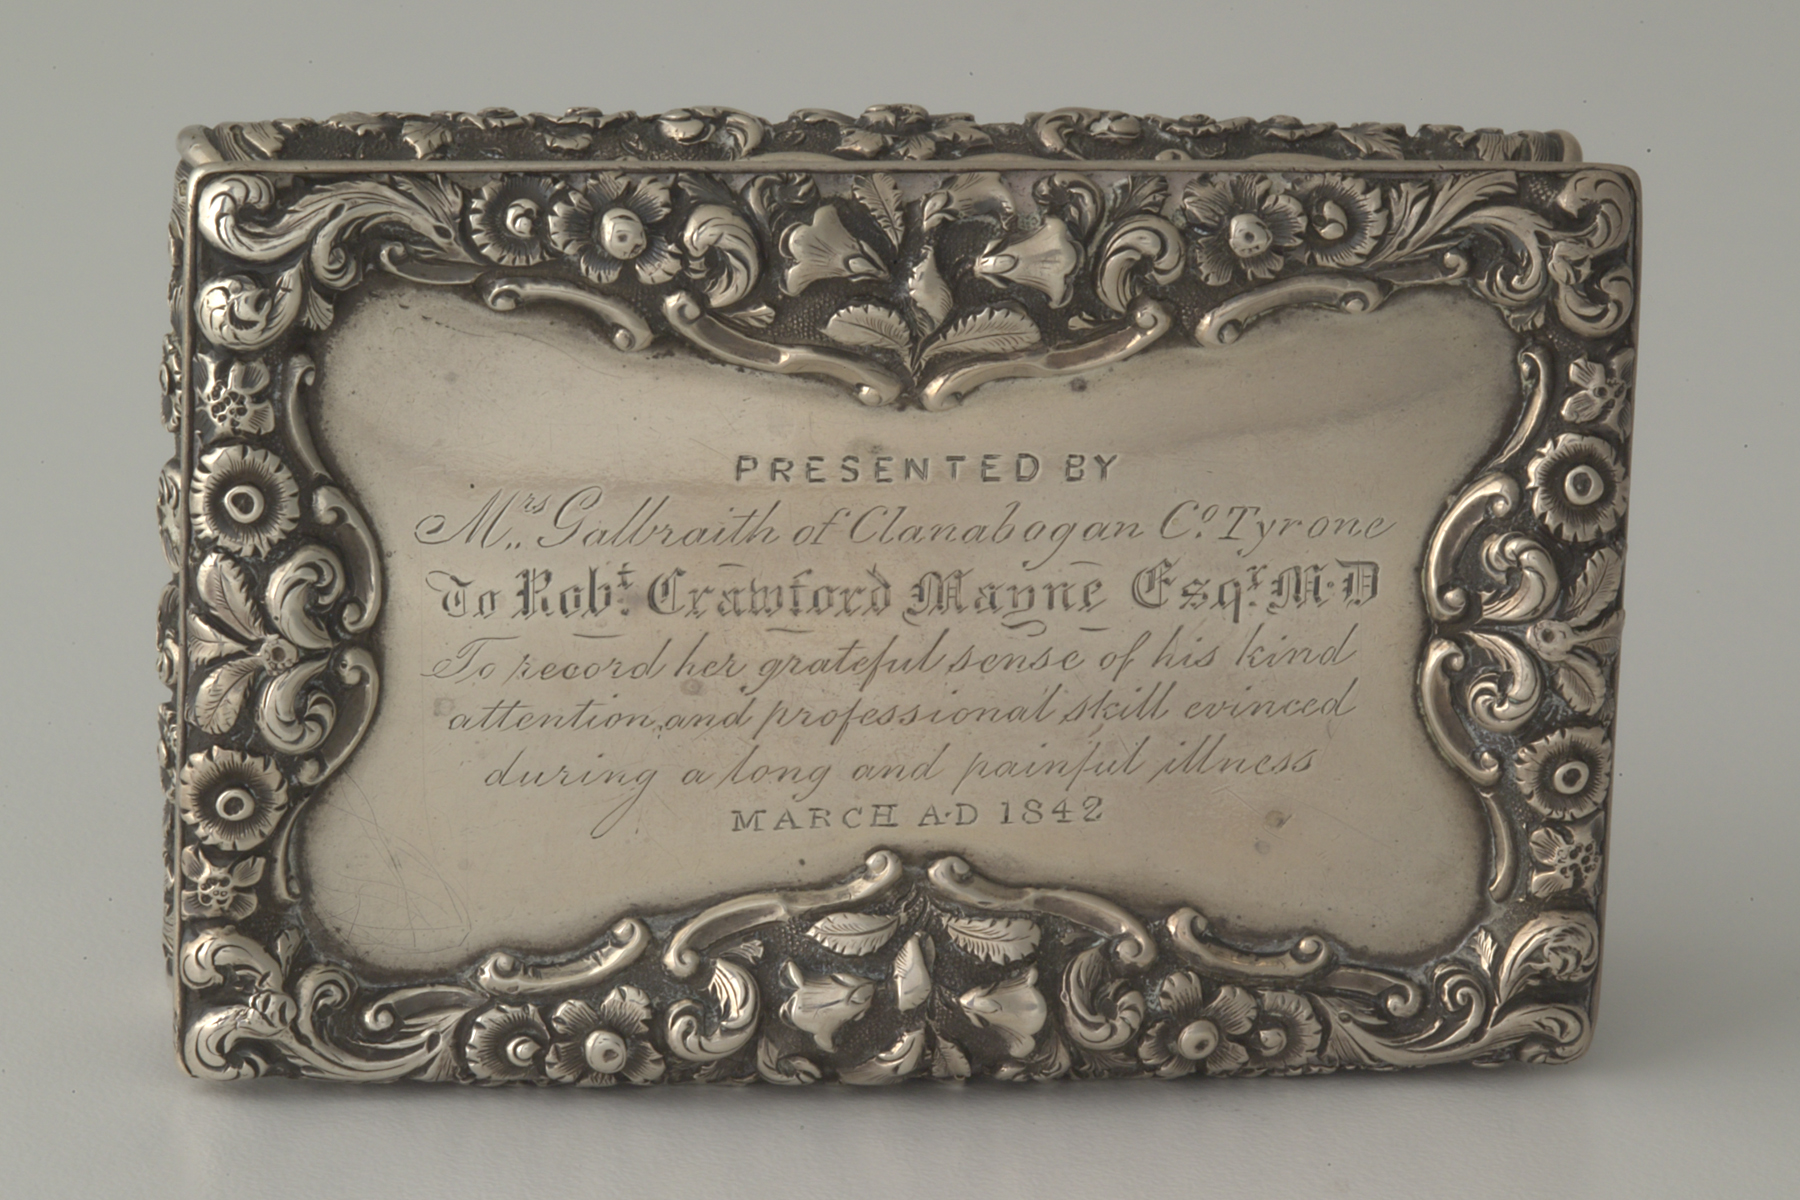 PRESENTED BY
Mrs Galbraith of Clanabogan Co. Tyrone
To Robt. Crawford Mayne Esqr. M.D
To record her grateful sense of his kind
attention, and professional skill evinced
during a long and painful illness
MARCH A.D 1842